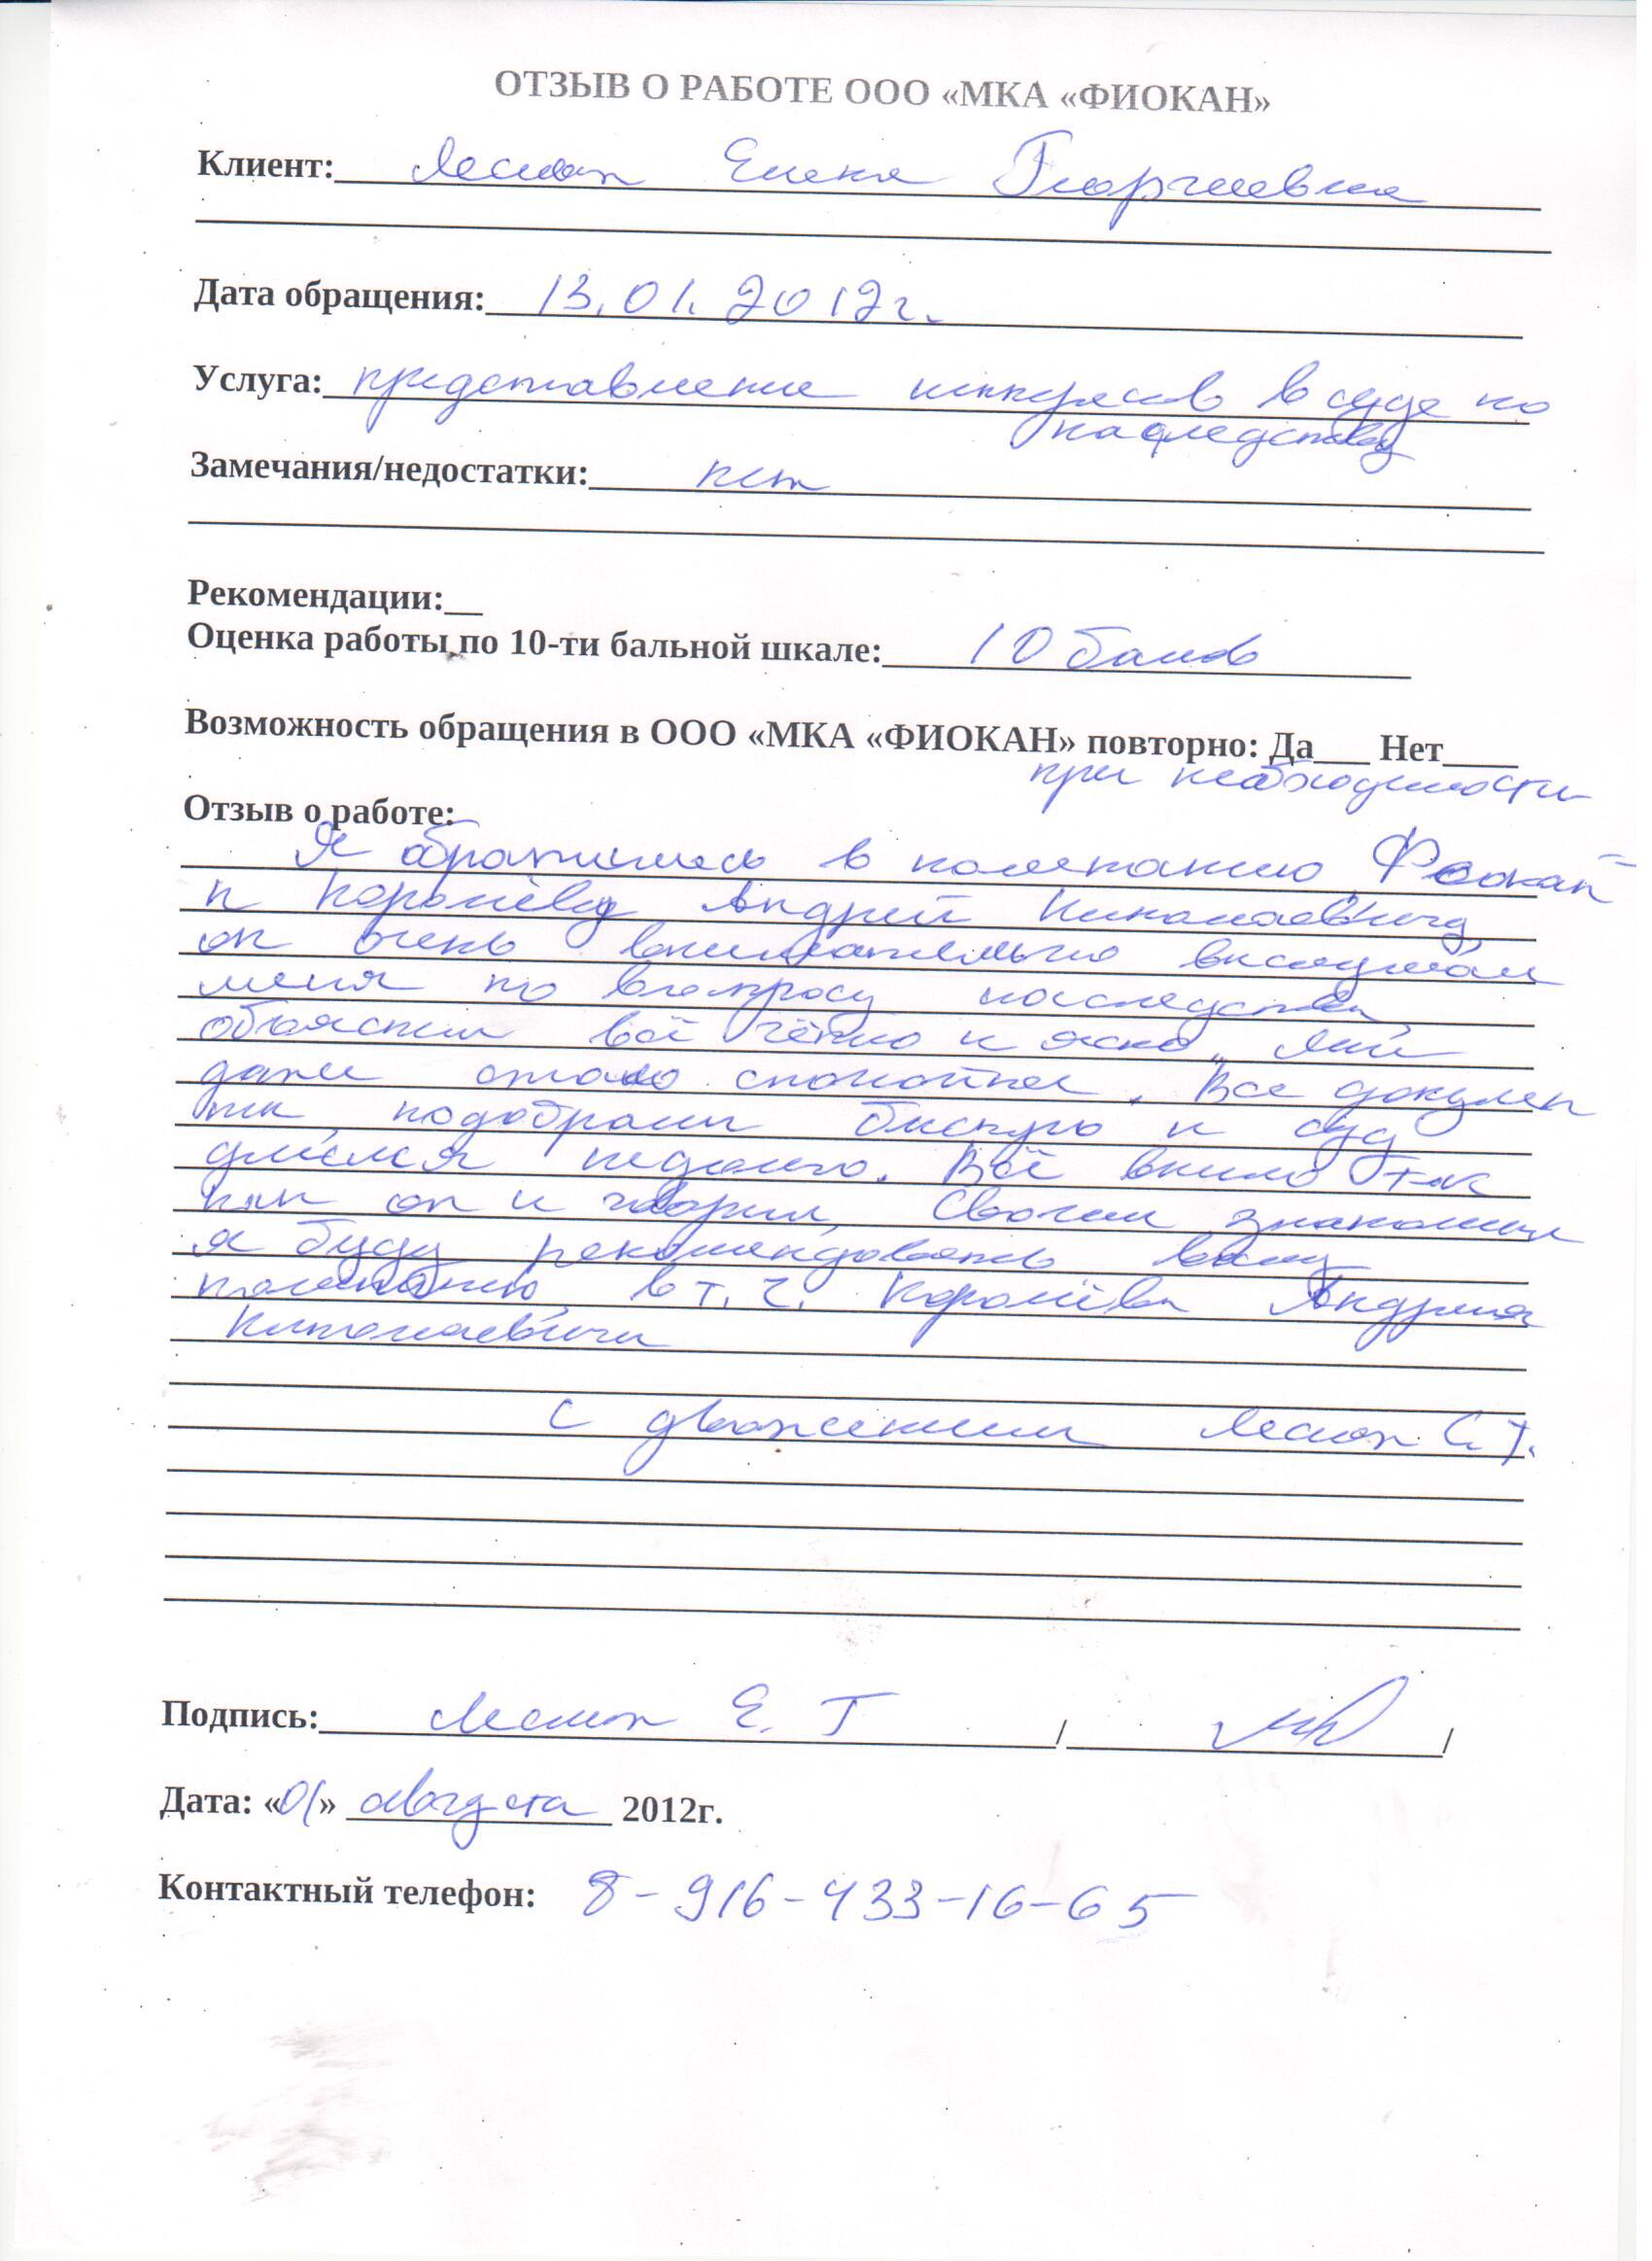 ОТЗЫВ О РАБОТЕ ООО «МКА «ФИОКАН»
Клиент: Елена Георгиевна
Дата обращения: 13.01.2012г.
Услуга: представление интересов в суде по
наследству
Замечания/недостатки: нет
Рекомендации:
Оценка работы по 10-ти бальной шкале: 10 балов
Возможность обращения в ООО «МКА «ФИОКАН» повторно: Да Нет
при необходимости
Отзыв о работе:
Я обратилась в компанию Фиокан
к Королёву Андрей Николаевичу,
он очень внимательно выслушал
меня по вопросу наследства,
объяснил всё чётко и ясно, мне
даже стало спокойнее. Все докумен
ты подобрали быстро и суд
длился недолго. Всё было так
как он и говорил. Своим знакомым
я буду рекомендовать вашу
компанию, в т.ч. Королёва Андрея
Николаевича
С уважением
Подпись: Е. Г / /
Дата: «01» августа 2012г.
Контактный телефон: 8-916-433-16-65